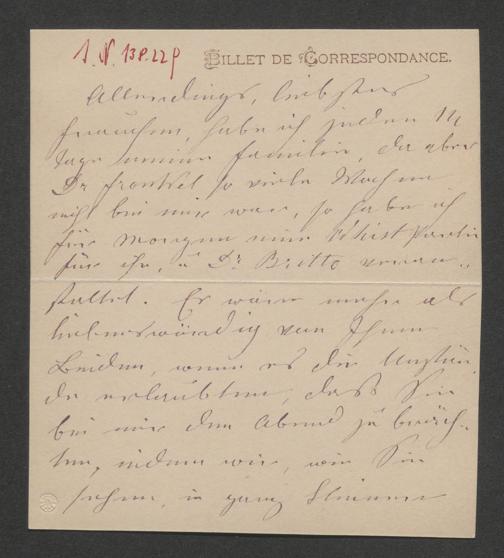 I. N. 138.229
BILLET DE CORRESPONDANCE.
Allerdings, liebstes
Frauchen, habe ich jeden 14
Tage meine Familie, da aber
Dr Frankel so viele Wochen
nicht bei mir war, so habe ich
für Morgen eine Whistpartie
für ihn, u Dr Britto veran-
staltet. Er wäre mehr als
liebenswürdig von Ihnen
Beiden, wenn es die Umstän
de erlaubten, daß Sie
bei mir den Abend zu
indem wir, wie Sie
sehen, in ganz kleinem